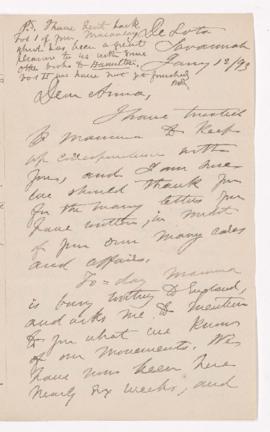 P.S. I have sent back
Vol I of your Macaulay
which has been a great
pleasure to us with some
other books to
Vol II you have not yet finished
De Soto
Savannah
Jany 12/93
Dear Anna,
I have trusted
to Mamma to keep
up correspondence with
you, and I am sure
we should thank you
for the many letters you
have written, in midst
of your own many cares
and affairs.
To-day Mamma
is busy writing to England,
and asks me to mention
to you what we know
of our movements. We
have now been here
nearly six weeks, and